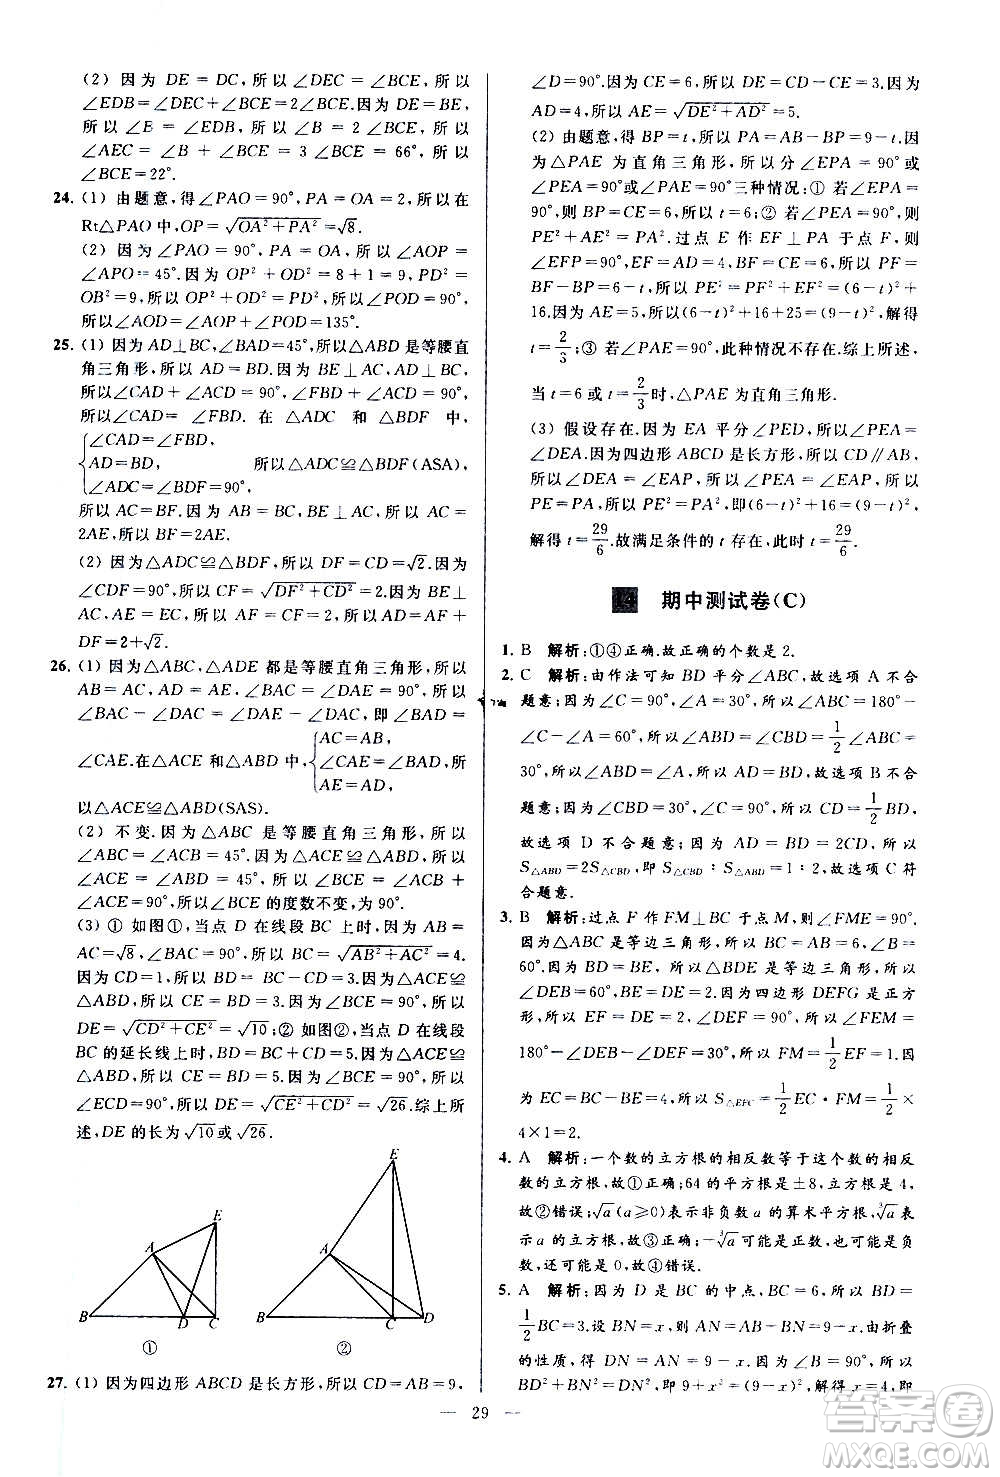 (2) 因为 DE＝DC,所以∠DEC＝∠BCE,所以
∠EDB＝∠DEC＋∠BCE＝2∠BCE.因为 DE＝BE,
所以∠B＝∠EDB,所以∠B＝2∠BCE,所以
∠AEC＝∠B＋∠BCE＝3∠BCE＝66°,所以
∠BCE＝22°.
24. (1) 由题意,得∠PAO＝90°,PA＝OA＝2,所以在
Rt△PAO中,OP＝√(OA²＋PA²)＝√8.
(2) 因为∠PAO＝90°,PA＝OA,所以∠AOP＝
∠APO＝45°.因为 OP²＋OD²＝8＋1＝9,PD²＝
OB²＝9,所以 OP²＋OD²＝PD²,所以∠POD＝90°,
所以∠AOD＝∠AOP＋∠POD＝135°.
25. (1) 因为 AD⊥BC,∠BAD＝45°,所以△ABD 是等腰直
角三角形,所以 AD＝BD.因为 BE⊥AC,AD⊥BC,
所以∠CAD＋∠ACD＝90°,∠FBD＋∠ACD＝90°,
所以∠CAD＝∠FBD.在△ADC 和△BDF 中,
∠CAD＝∠FBD,
AD＝BD, 所以△ADC≌△BDF(ASA),
∠ADC＝∠BDF＝90°,
所以 AC＝BF.因为 AB＝BC,BE⊥AC,所以 AC＝
2AE,所以 BF＝2AE.
(2) 因为△ADC≌△BDF,所以 DF＝CD＝√2.因为
∠CDF＝90°,所以 CF＝√(DF²＋CD²)＝2.因为 BE⊥
AC,AE＝EC,所以 AF＝CF＝2,所以 AD＝AF＋
DF＝2＋√2.
26. (1) 因为△ABC,△ADE 都是等腰直角三角形,所以
AB＝AC,AD＝AE,∠BAC＝∠DAE＝90°,所以
∠BAC－∠DAC＝∠DAE－∠DAC,即∠BAD＝
AC＝AB,
∠CAE.在△ACE 和△ABD 中, ∠CAE＝∠BAD,所
AE＝AD,
以△ACE≌△ABD(SAS).
(2) 不变.因为△ABC 是等腰直角三角形,所以
∠ABC＝∠ACB＝45°.因为△ACE≌△ABD,所以
∠ACE＝∠ABD＝45°,所以∠BCE＝∠ACB＋
∠ACE＝90°,所以∠BCE的度数不变,为90°.
(3) ① 如图①,当点 D 在线段 BC 上时,因为 AB＝
AC＝√8,∠BAC＝90°,所以 BC＝√(AB²＋AC²)＝4.
因为 CD＝1,所以 BD＝BC－CD＝3.因为△ACE≌
△ABD,所以 CE＝BD＝3.因为∠BCE＝90°,所以
DE＝√(CD²＋CE²)＝√10;② 如图②,当点 D 在线段
BC 的延长线上时,BD＝BC＋CD＝5.因为△ACE≌
△ABD,所以 CE＝BD＝5.因为∠BCE＝90°,所以
∠ECD＝90°,所以 DE＝√(CE²＋CD²)＝√26.综上所
述,DE 的长为√10或√26.
E
A
B D C
①
E
A
B C D
②
27. (1) 因为四边形 ABCD 是长方形,所以 CD＝AB＝9,
∠D＝90°.因为 CE＝6,所以 DE＝CD－CE＝3.因为
AD＝4,所以 AE＝√(DE²＋AD²)＝5.
(2) 由题意,得 BP＝t,所以 PA＝AB－BP＝9－t.因
为△PAE 为直角三角形,所以分∠EPA＝90°或
∠PEA＝90°或∠PAE＝90°三种情况:① 若∠EPA＝
90°,则 BP＝CE＝6,所以 t＝6;② 若∠PEA＝90°,则
PE²＋AE²＝PA².过点 E 作 EF⊥PA 于点 F,则
∠EFP＝90°,所以 EF＝AD＝4,BF＝CE＝6,所以 PF＝
BF－BP＝6－t,所以 PE²＝PF²＋EF²＝(6－t)²＋
16.因为 AE＝5,所以(6－t)²＋16＋25＝(9－t)²,解得
t＝2/3;③ 若∠PAE＝90°,此种情况不存在.综上所述,
当 t＝6或2/3时,△PAE 为直角三角形.
(3) 假设存在.因为 EA 平分∠PED,所以∠PEA＝
∠DEA.因为四边形 ABCD 是长方形,所以 CD∥AB,
所以∠DEA＝∠EAP,所以∠PEA＝∠EAP,所以
PE＝PA,所以 PE²＝PA²,即(6－t)²＋16＝(9－t)²,
解得 t＝29/6.故满足条件的 t 存在,此时 t＝29/6.
14 期中测试卷(C)
1. B 解析:①④正确.故正确的个数是 2.
2. C 解析:由作法可知 BD 平分∠ABC,故选项 A 不合
题意;因为∠C＝90°,∠A＝30°,所以∠ABC＝180°－
∠C－∠A＝60°,所以∠ABD＝∠CBD＝1/2∠ABC＝
30°,所以∠ABD＝∠A,所以 AD＝BD,故选项 B 不合
题意;因为∠CBD＝30°,∠C＝90°,所以 CD＝1/2BD,
故选项 D 不合题意;因为 AD＝BD＝2CD,所以
S△ABD＝2S△CBD,即 S△CBD∶S△ABD＝1∶2,故选项 C 符
合题意.
3. B 解析:过点 F 作 FM⊥BC 于点 M,则∠FME＝90°.
因为△ABC 是等边三角形,所以 BC＝AB＝6,∠B＝
60°.因为 BD＝BE,所以△BDE 是等边三角形,所以
∠DEB＝60°,BE＝DE＝2.因为四边形 DEFG 是正方
形,所以 EF＝DE＝2,∠DEF＝90°,所以∠FEM＝
180°－∠DEB－∠DEF＝30°,所以 FM＝1/2EF＝1.因
为 EC＝BC－BE＝4,所以 S△EFC＝1/2EC·FM＝1/2×
4×1＝2.
4. A 解析:一个数的立方根的相反数等于这个数的相反
数的立方根,故①正确;64 的平方根是±8,立方根是 4,
故②错误;√a(a≥0)表示非负数 a 的算术平方根,∛a表
示 a 的立方根,故③正确;－∛a可能是正数,可能是负
数,还可能是 0,故④错误.
5. A 解析:因为 D 是 BC 的中点,BC＝6,所以 BD＝
1/2BC＝3.设 BN＝x,则 AN＝AB－BN＝9－x.由折叠
的性质,得 DN＝AN＝9－x.因为∠B＝90°,所以
BD²＋BN²＝DN²,即 9＋x²＝(9－x)²,解得 x＝4,即
— 29 —
答案圈
MXQE.COM